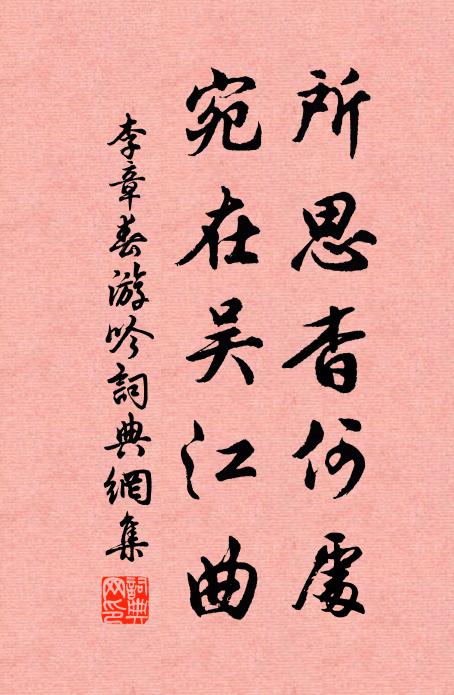 所思杳何處
宛在吴江曲
李章春游吟詞典網集
詞典
网印